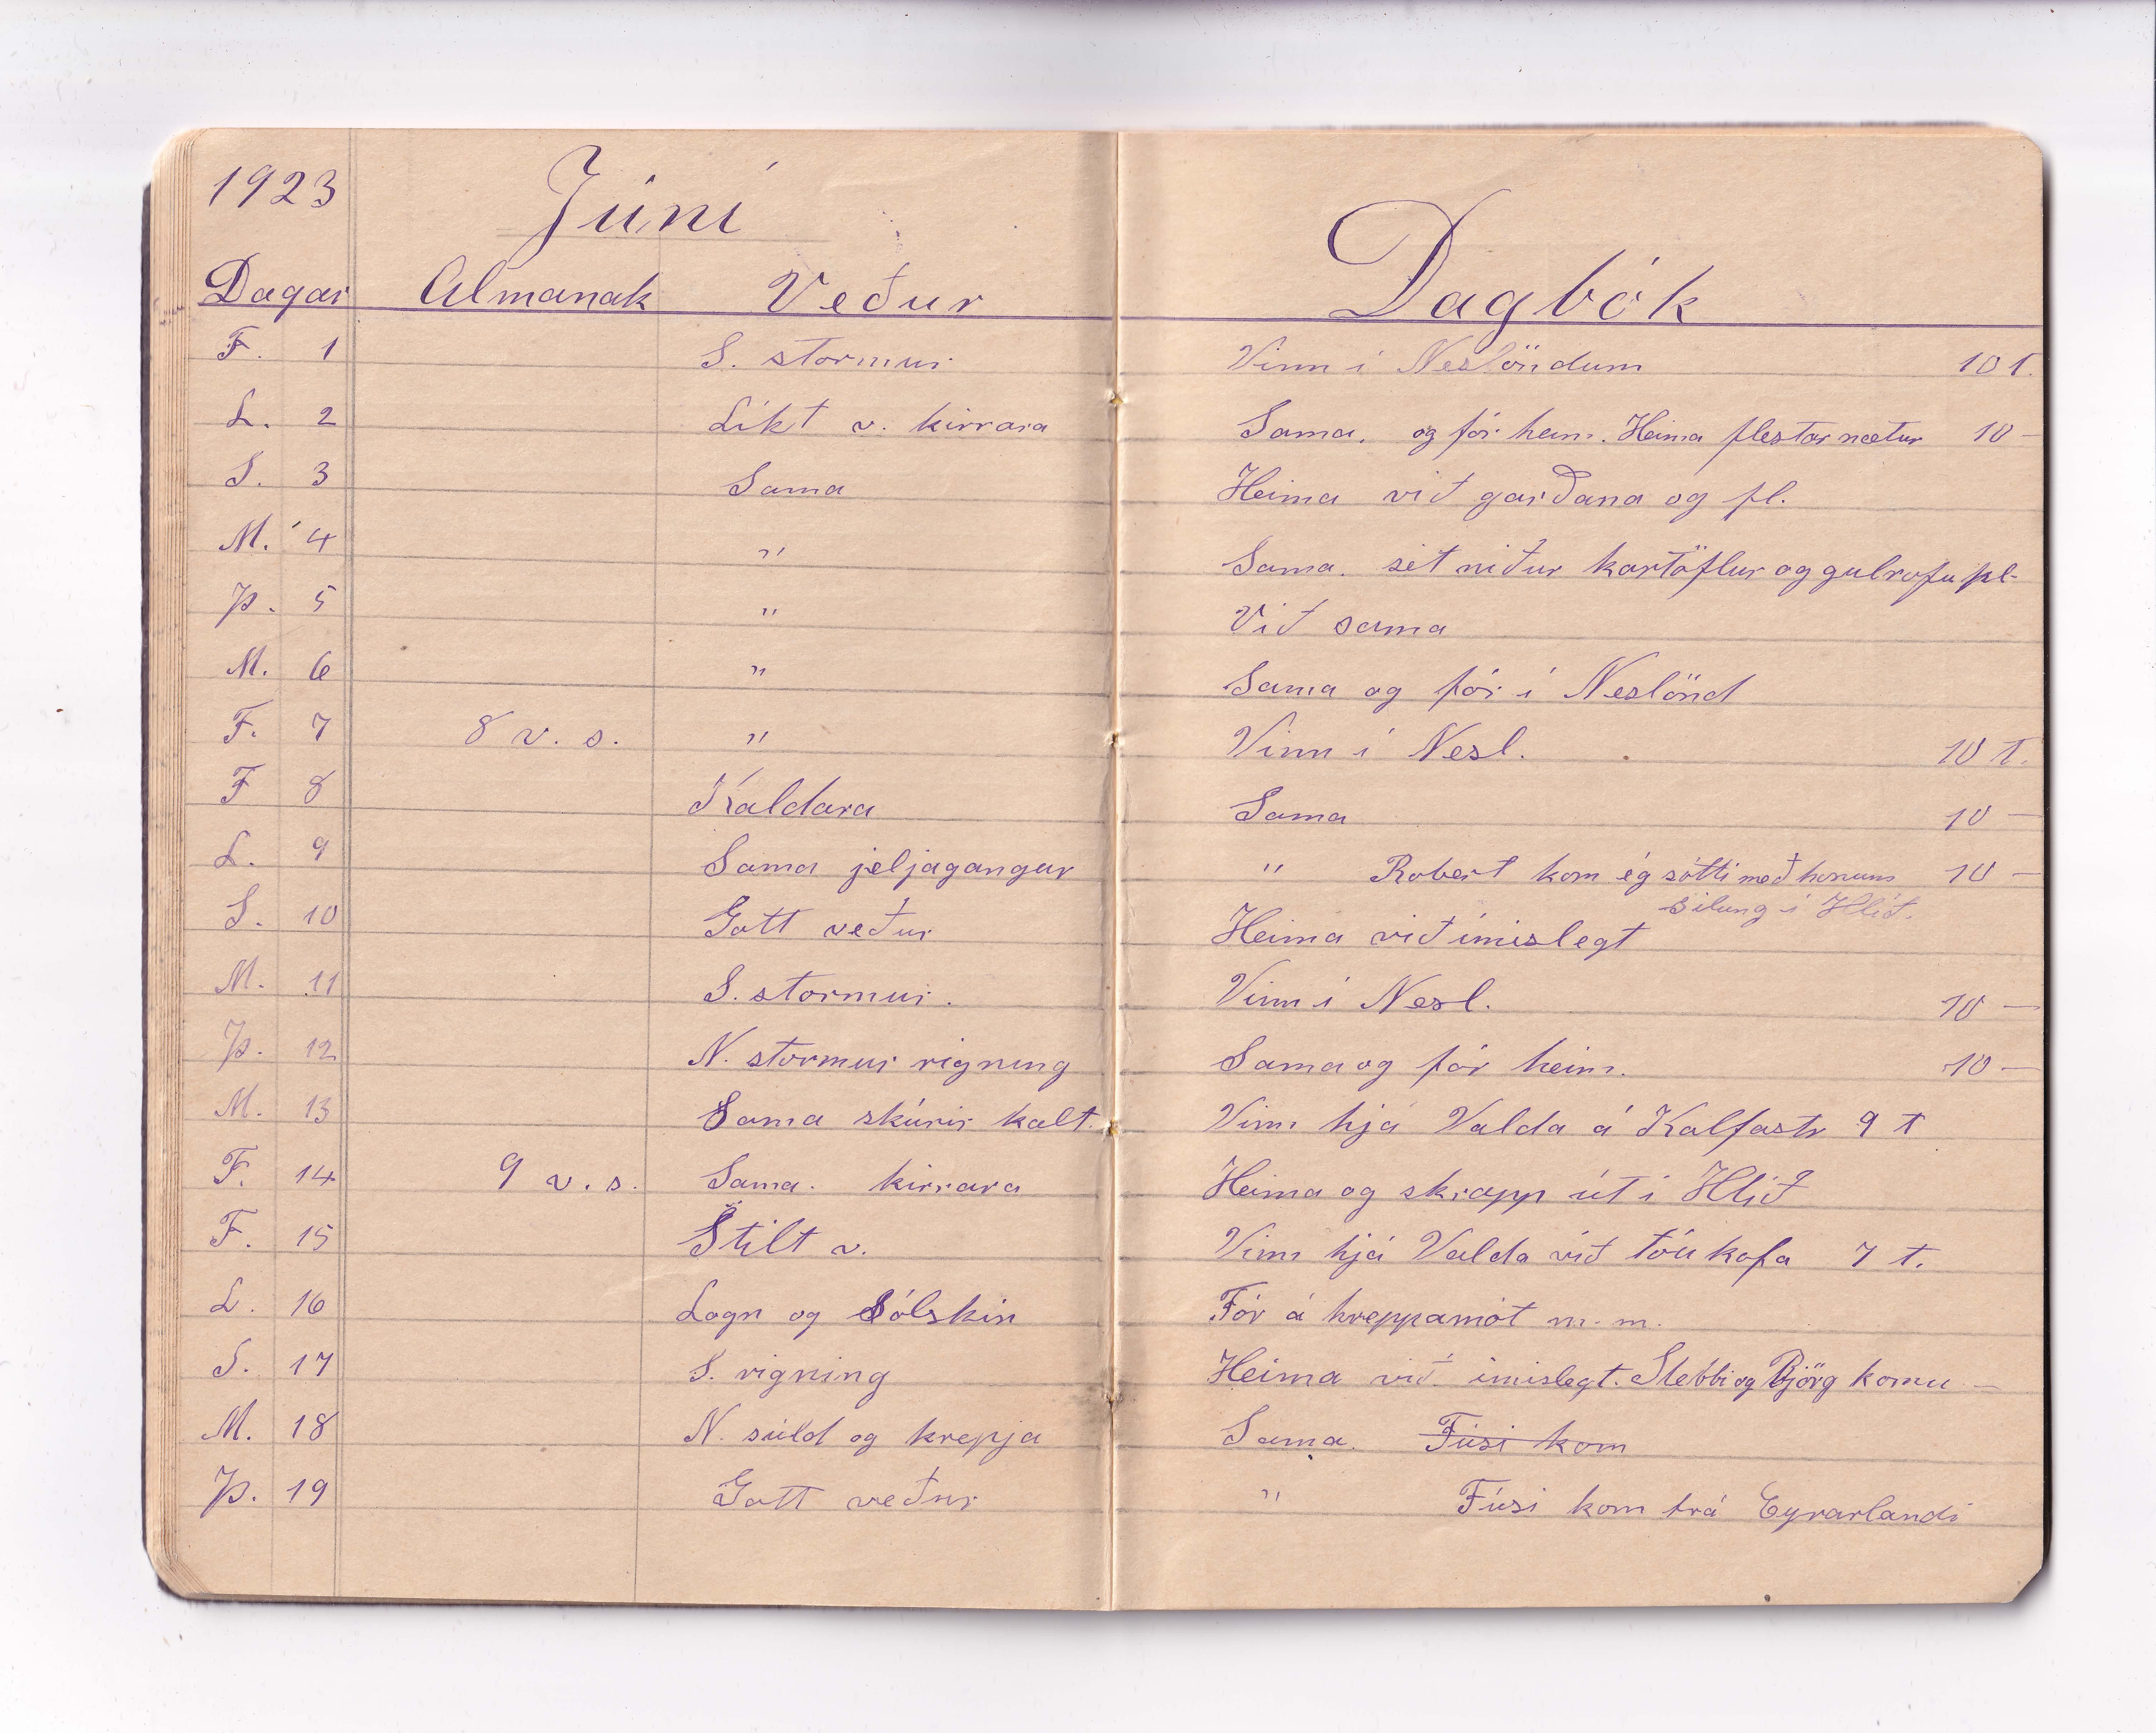 1923 Júní
Dagar Almanak Veður Dagbók
F. 1 S. stormur Vinn í Neslöndum 10 t.
L. 2 Líkt v. kirrara Sama. og fór heim. Heima flestar nætur 10 –
S. 3 Sama Heima við garðana og fl.
M. 4 " Sama. set niður kartöflur og gulrofupl-
Þ. 5 " Við sama
M. 6 " Sama og fór í Neslönd
F. 7 8 v. s. " Vinn í Nesl. 10 t.
F 8 Kaldara Sama 10 –
L. 9 Sama jeljagangur " Robert kom ég sótti með honum 10 –
silung í Hlíð.
S. 10 Gott veður Heima við ímislegt
M. 11 S. stormur. Vinn í Nesl. 10 –
Þ. 12 N. stormur rigning Sama og fór heim. 10 –
M. 13 Sama skúrir kalt. Vinn hjá Valda á Kalfastr 9 t
F. 14 9 v. s. Sama. kirrara Heima og skrapp út í Hlíð
F. 15 Stilt v. Vinn hjá Valda við tóukofa 7 t.
L. 16 Logn og Sólskin Fór á hreppamót m. m.
S. 17 S. rigning Heima við ímislegt. Stebbi og Björg komu –
M. 18 N. súld og krepja Sama. Fúsi kom
Þ. 19 Gott veður " Fúsi kom frá Eyrarlandi